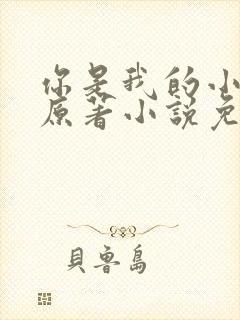 你是我的小
原著小說免
貝魯島